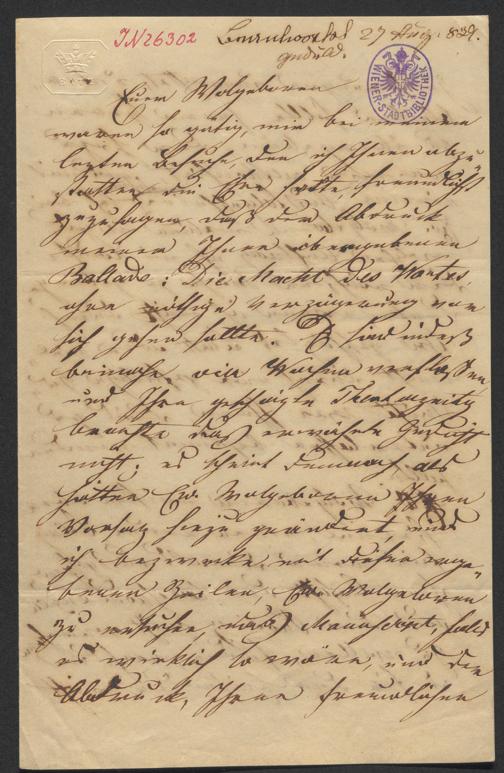 IN 26302
27 Aug. 839.
WIENER-STADTBIBLIOTHEK
Euer Wolgeboren
waren so gütig, mir bei meinem
lezten Besuche, den ich Ihnen abzu
statten die Ehre hatte, freundlichst
zuzusagen, daß der Abdruck
meiner Ihnen übergebenen
Ballade: Die Macht des Wortes,
ohne nöthige Verzögerung vor
sich gehen sollte. Es sind indeß
beinahe vier Wochen verflossen,
und Ihre geschäzte Theaterzeitg
brachte das erwähnte Gedicht
nicht; es scheint demnach als
hätten Ew. Wolgeboren Ihren
Vorsaz hiezu geändert, und
ich bezwecke mit diesen erge-
benen Zeilen, Ew. Wolgeboren
zu ersuchen, das Manuscript, falls
es wirklich so wäre, und der
Abdruck, Ihrer freundlichen